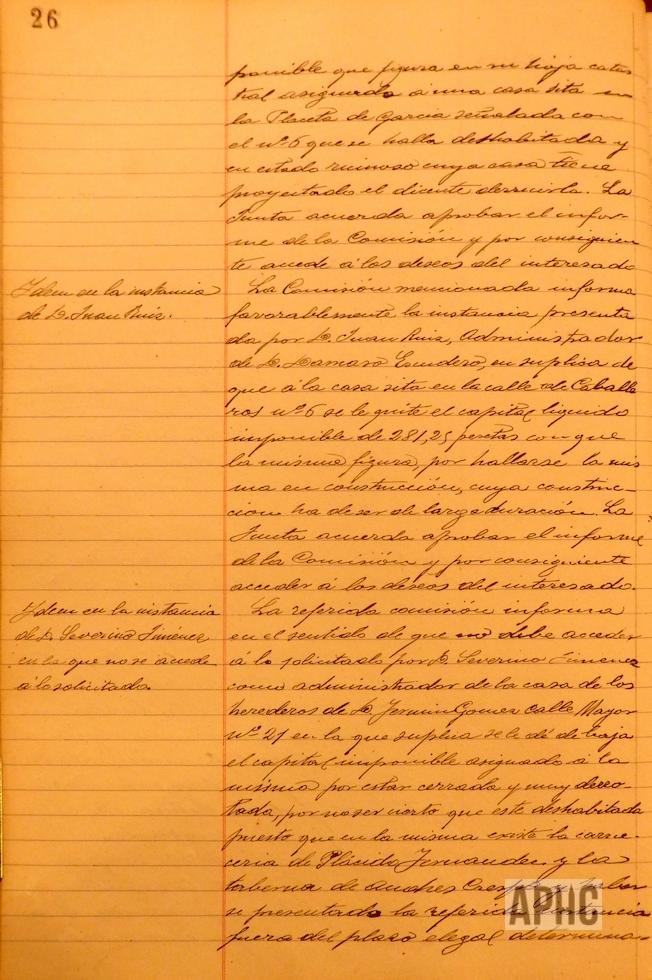 26
ponible que figura en su hoja catas
tral asignado á una casa sita en
la Placeta de Garcia señalada con
el nº 6 que se halla deshabitada y
en estado ruinoso cuya casa tiene
proyectado el dicente derruirla. La
Junta acuerda aprobar el infor-
me de la Comisión y por consiguien
te accede á los deseos del interesado
Idem en la instancia
de D. Juan Ruiz.
La Comisión mencionada informa
favorablemente la instancia presenta
da por D. Juan Ruiz, Administrador
de D. Damaso Escudero, en suplica de
que á la casa sita en la calle de Caballe
ros nº 6 se le quite el capital liquido
imponible de 281,25 pesetas con que
la misma figura, por hallarse la mis
ma en construcción, cuya construc-
cion ha de ser de larga duración. La
Junta acuerda aprobar el informe
de la Comisión y por consiguiente
acceder á los deseos del interesado.
Idem en la instancia
de D. Severino Jiménez
en la que no se accede
á lo solicitado
La referida comisión informa
en el sentido de que no debe acceder
á lo solicitado por D. Severino Jimenez
como administrador de la casa de los
herederos de D. Fermin Gomez calle Mayor
nº 21 en la que suplica se le dé de baja
el capital imponible asignado á la
misma por estar cerrada y muy
por no ser cierto que este deshabitada
puesto que en la misma existe la carni-
ceria de Plácido Fernandez y la
taberna de Andres Crespo y haber
se presentado la referida instancia
fuera del plazo elegal determina-
APHC